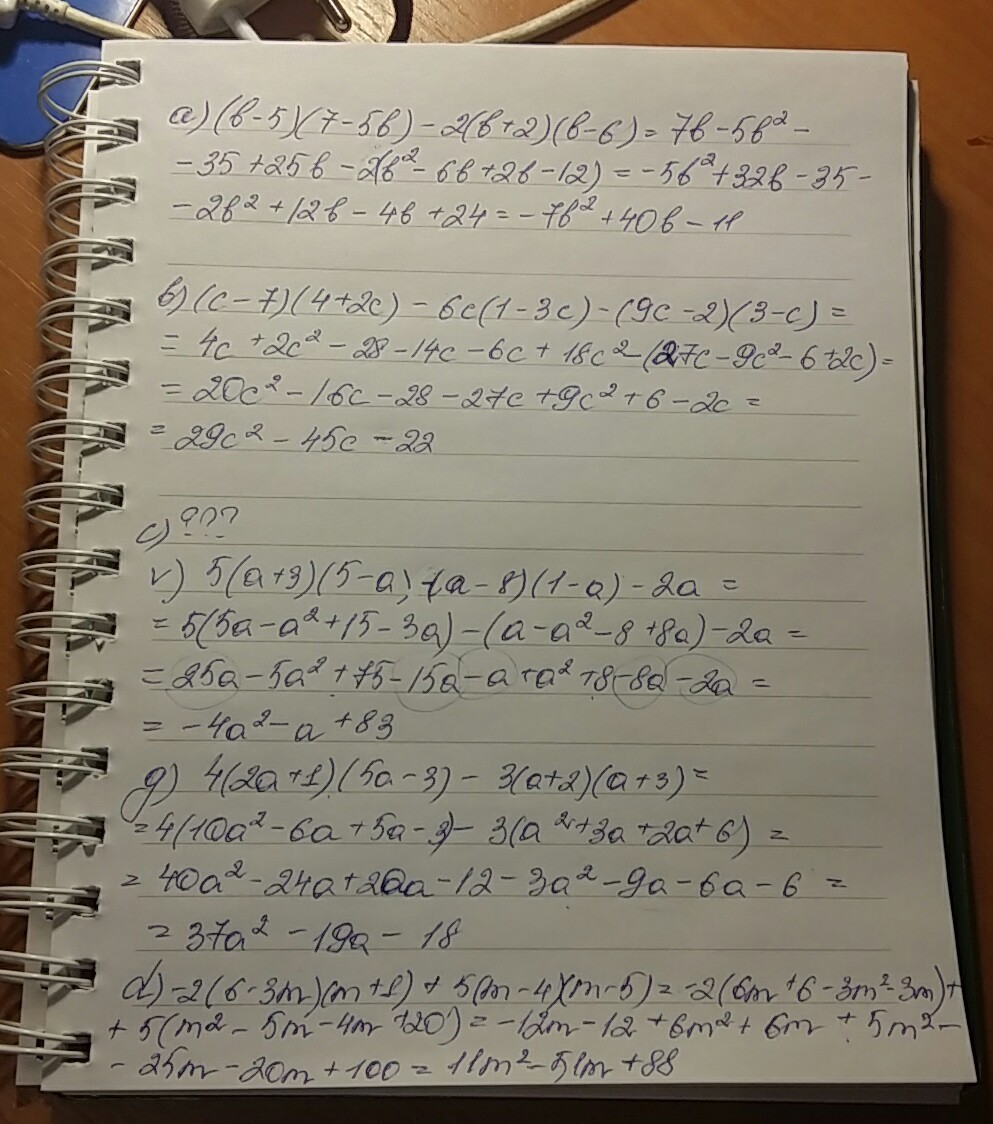 а) (b-5)(7-5b) - 2(b+2)(b-6) = 7b - 5b² -
- 35 + 25b - 2(b² - 6b + 2b - 12) = -5b² + 32b - 35 -
- 2b² + 12b - 4b + 24 = -7b² + 40b - 11
в) (c-7)(4+2c) - 6c(1-3c) - (9c-2)(3-c) =
= 4c + 2c² - 28 - 14c - 6c + 18c² - (27c - 9c² - 6 + 2c) =
= 20c² - 16c - 28 - 27c + 9c² + 6 - 2c =
= 29c² - 45c - 22
c) ???
г) 5(a+3)(5-a) - (a-8)(1-a) - 2a =
= 5(5a - a² + 15 - 3a) - (a - a² - 8 + 8a) - 2a =
= 25a - 5a² + 75 - 15a - a + a² + 8 - 8a - 2a =
= -4a² - a + 83
g) 4(2a+1)(5a-3) - 3(a+2)(a+3) =
= 4(10a² - 6a + 5a - 3) - 3(a² + 3a + 2a + 6) =
= 40a² - 24a + 20a - 12 - 3a² - 9a - 6a - 6 =
= 37a² - 19a - 18
d) -2(6-3m)(m+1) + 5(m-4)(m-5) = -2(6m + 6 - 3m² - 3m) +
+ 5(m² - 5m - 4m + 20) = -12m - 12 + 6m² + 6m + 5m² -
- 25m - 20m + 100 = 11m² - 51m + 88